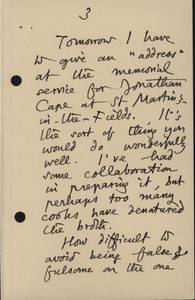 3
Tomorrow I have
to give an "address"
at the memorial
service for Jonathan
Cape at St Martin's-
in-the-Fields. It's
the sort of thing you
would do wonderfully
well. I've had
some collaboration
in preparing it, but
perhaps too many
cooks have denatured
the broth.
How difficult to
avoid being false &
fulsome on the one